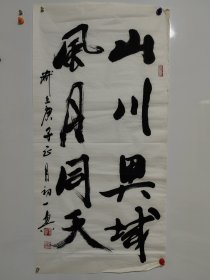 山川異域
風月同天
庚子正月初一